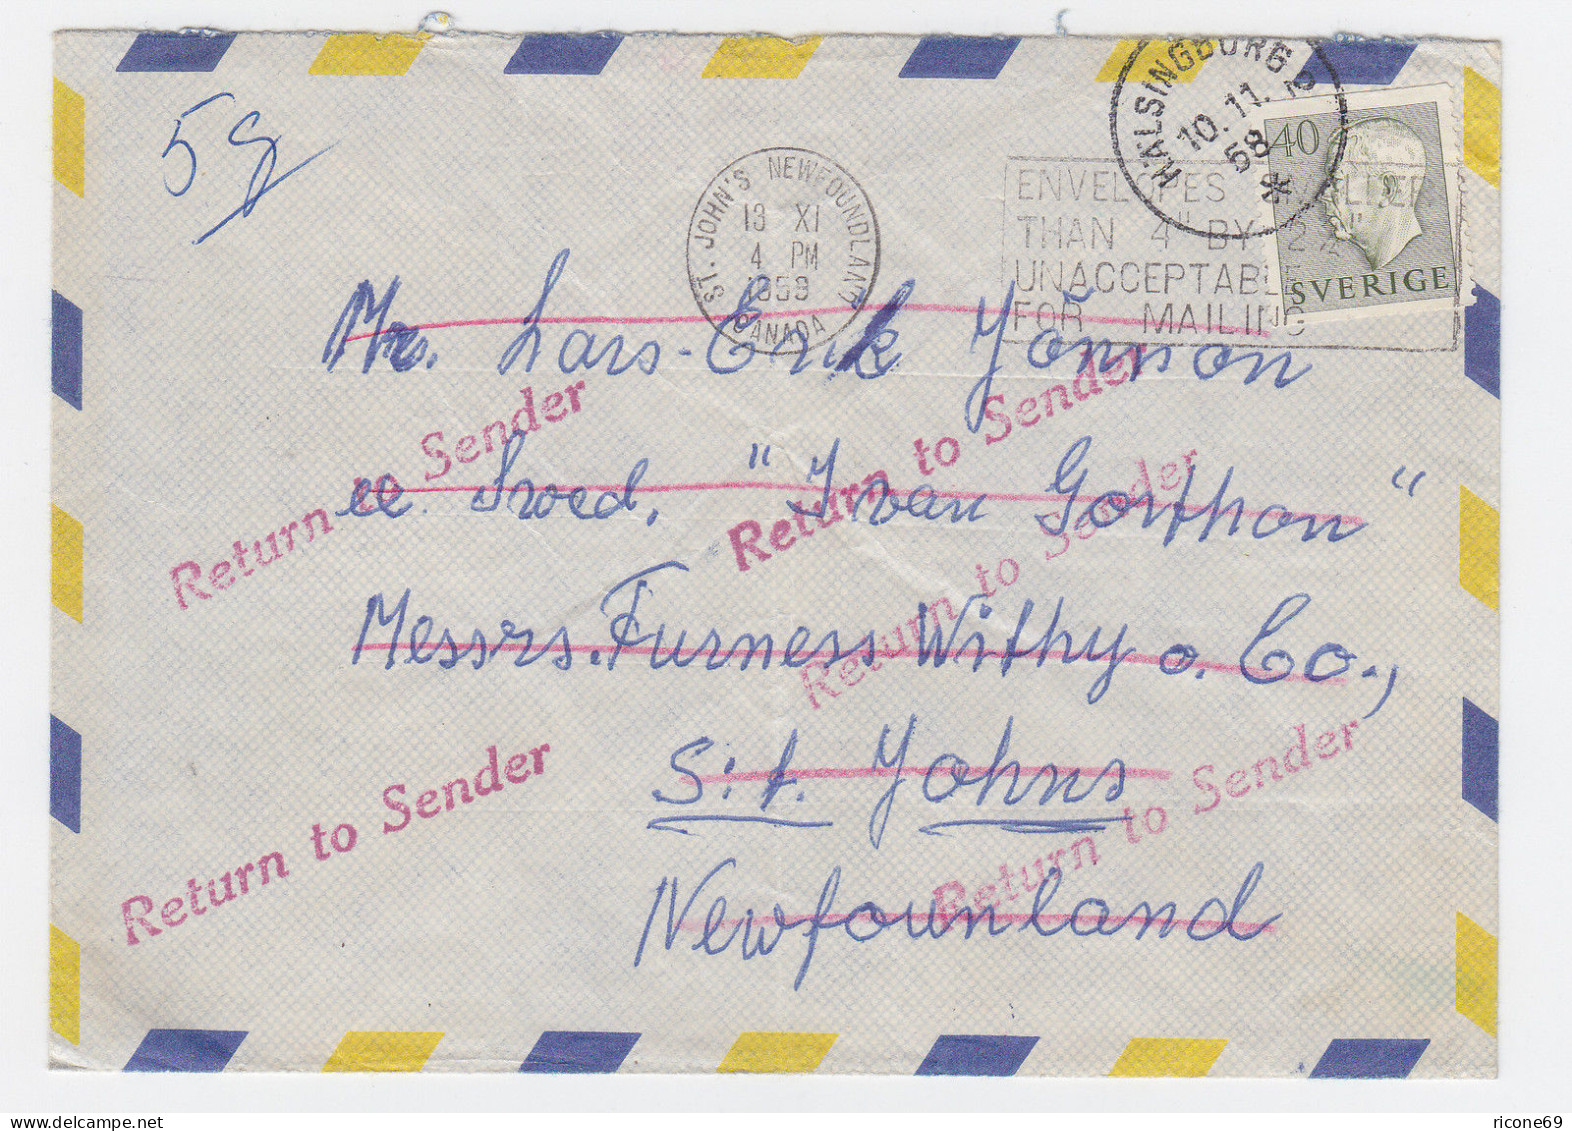 5g
HÄLSINGBORG 2
10.11.
58
*
40
SVERIGE
ST. JOHN'S NEWFOUNDLAND
13 XI
4 PM
1958
CANADA
ENVELOPES SMALLER
THAN 4" BY 2¾"
UNACCEPTABLE
FOR MAILING
Mr. Lars-Erik Jonnson
cc. Swed. "Ivan Gorthon"
Messrs. Furness Withy o. Co.,
S:t. Johns
Newfounland
Return to Sender
Return to Sender
Return to Sender
Return to Sender
Return to Sender
ricone69